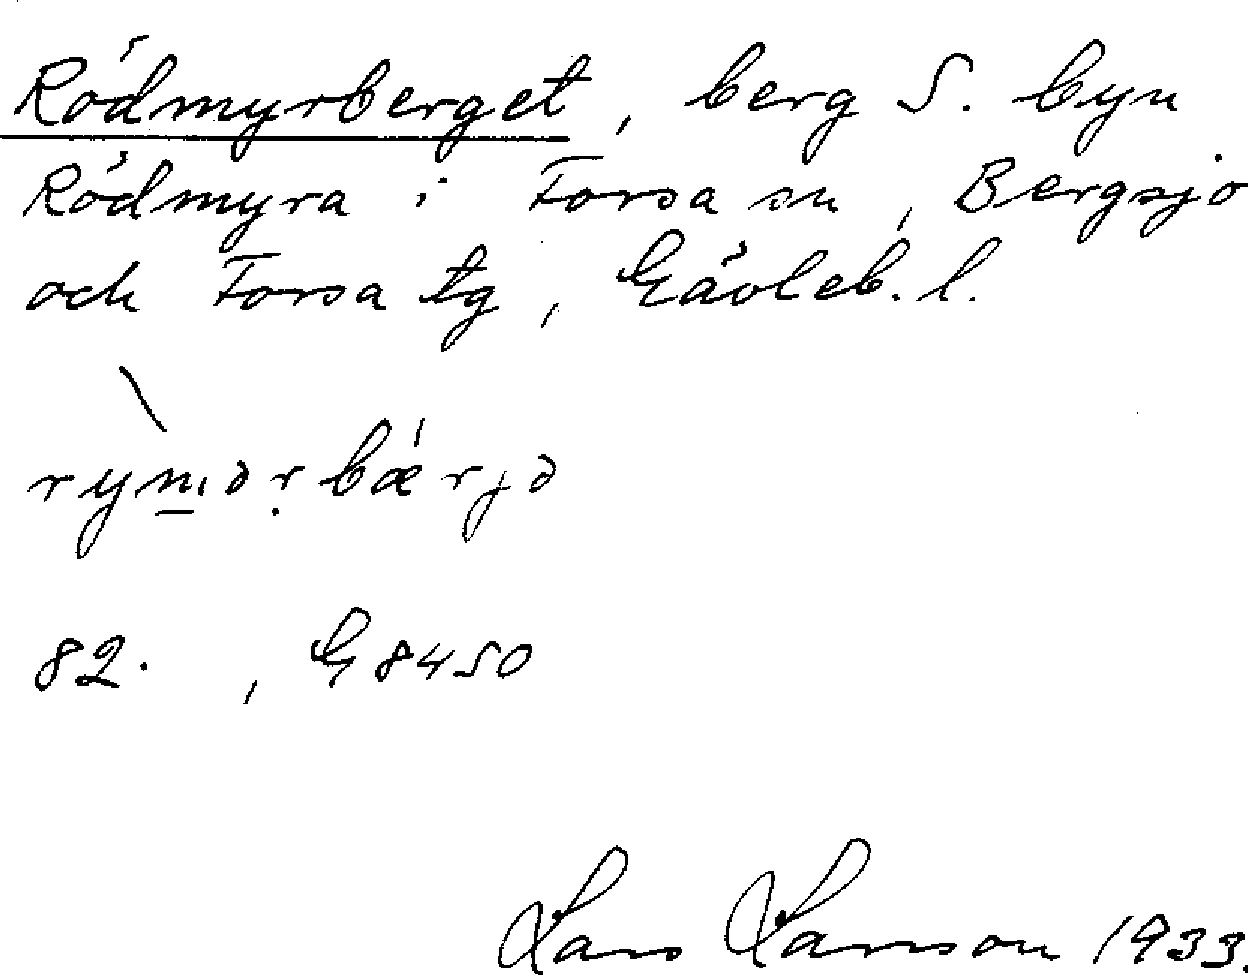 Rödmyrberget, berg S. byn
Rödmyra i Forsa sn, Bergsjö
och Forsa tg, Gävleb. l.
rym̱ər̩bærjə
82. , G 8450
Lars Larsson 1933.